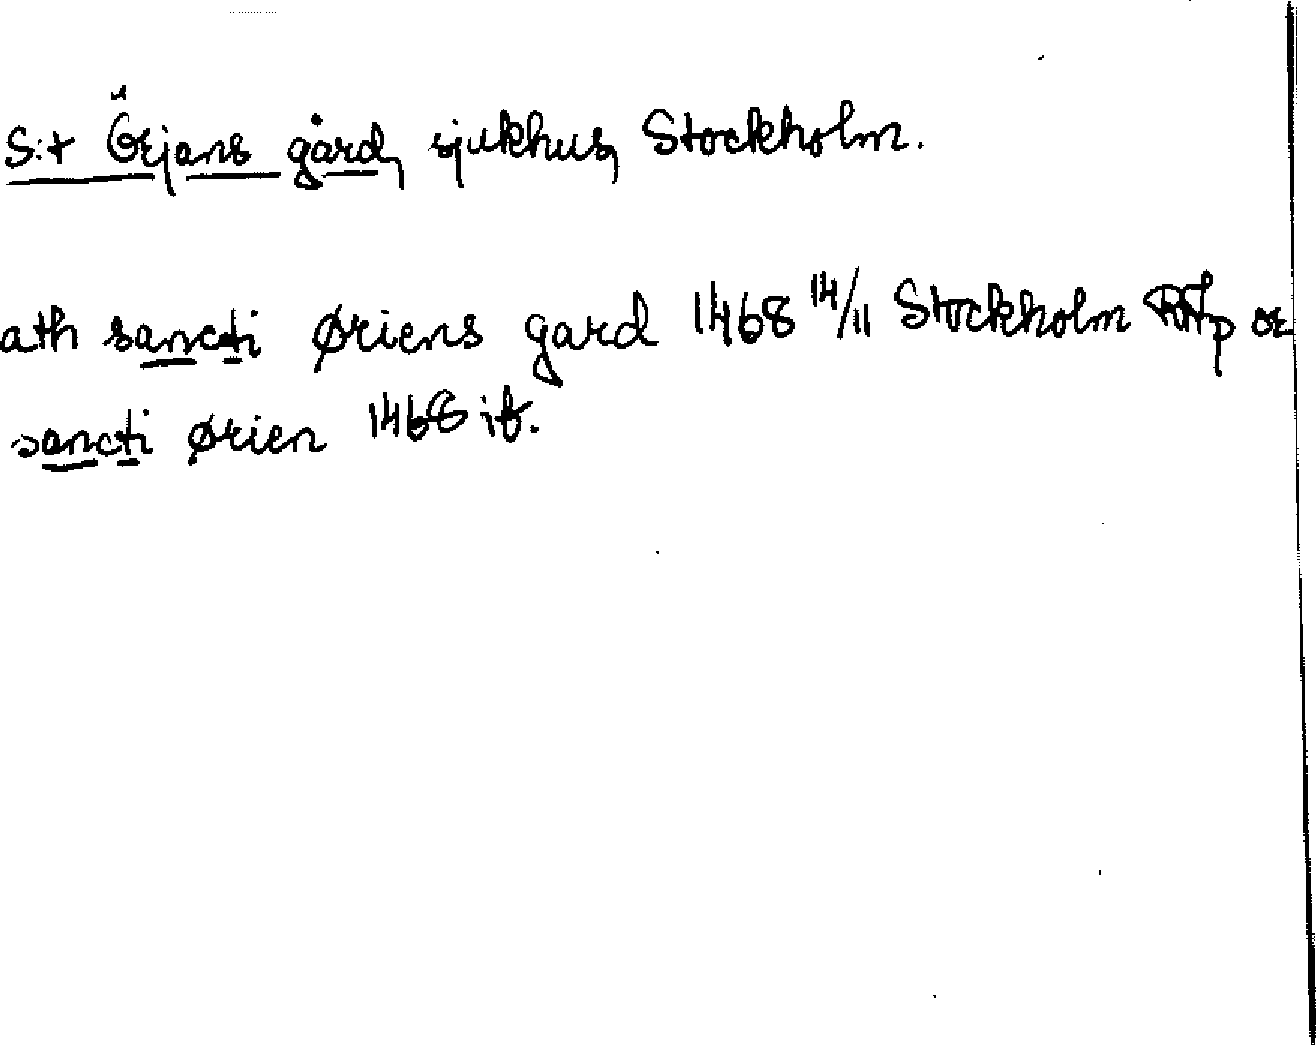 S:t Örjans gård, sjukhus, Stockholm.
ath sancti øriens gard 1468 14/11 Stockholm RAp or
sancti ørien 1468 ib.